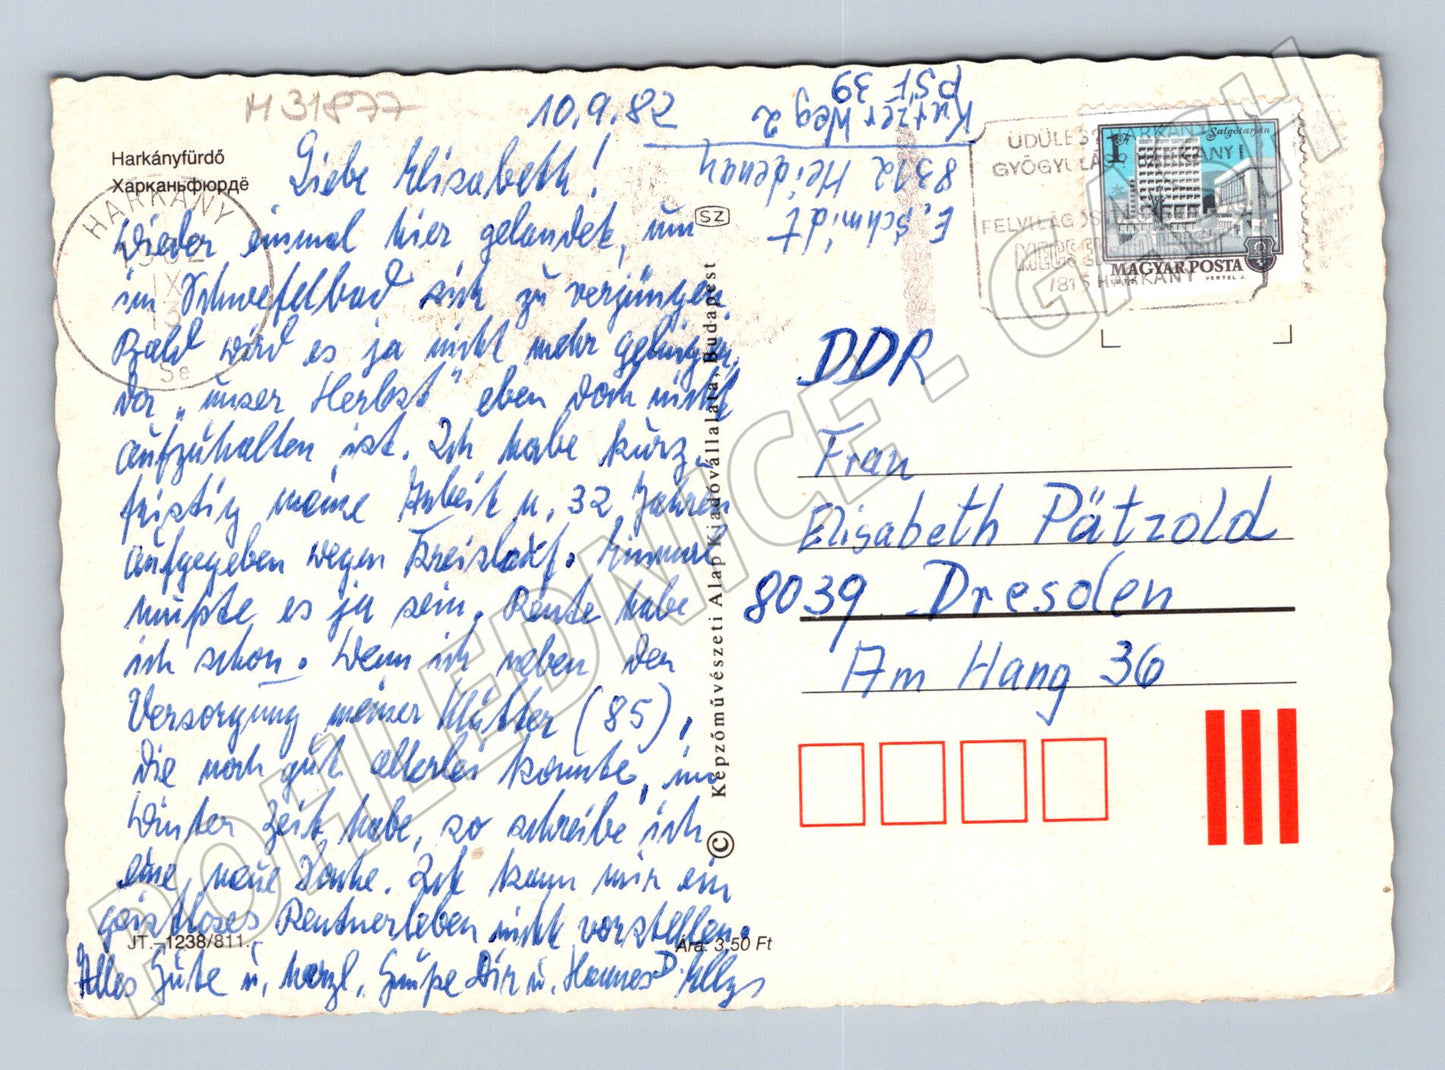 H 31877
10.9.82
Harkányfürdő
Харканьфюрдё
Liebe Elisabeth!
Wieder einmal hier gelandet, um
im Schwefelbad sich zu verjüngen.
Bald wird es ja nicht mehr gelingen,
da „unser Herbst" eben doch nicht
aufzuhalten ist. Ich habe kurz
fristig meine Arbeit n. 32 Jahren
aufgegeben wegen Kreislauf. Einmal
mußte es ja sein. Rente habe
ich schon. Wenn ich neben der
Versorgung meiner Mutter (85),
die noch gut allerlei konnte, im
Winter Zeit habe, so schreibe ich
eine neue Karte. Ich kann mir ein
geistloses Rentnerleben nicht vorstellen.
Alles Gute u. herzl. Grüße Dir u. Hannes D. Elly
JT.–1238/811.
Ára: 3,50 Ft
HARKÁNY
1982
IX
13
Se
SZ
Képzőművészeti Alap Kiadóvállalata, Budapest
©
E. Schmidt
8312 Heidenau
Kurzer Weg 2
PSF 39
ÜDÜLÉS HARKÁNY
GYÓGYULÁS HARKÁNY!
FELVILÁGOSÍTÁS
7815 HARKÁNY
1 Ft
Salgótarján
MAGYAR POSTA
VERTEL J.
DDR
Frau
Elisabeth Pätzold
8039 Dresden
Am Hang 36
POHLEDNICE - GASH